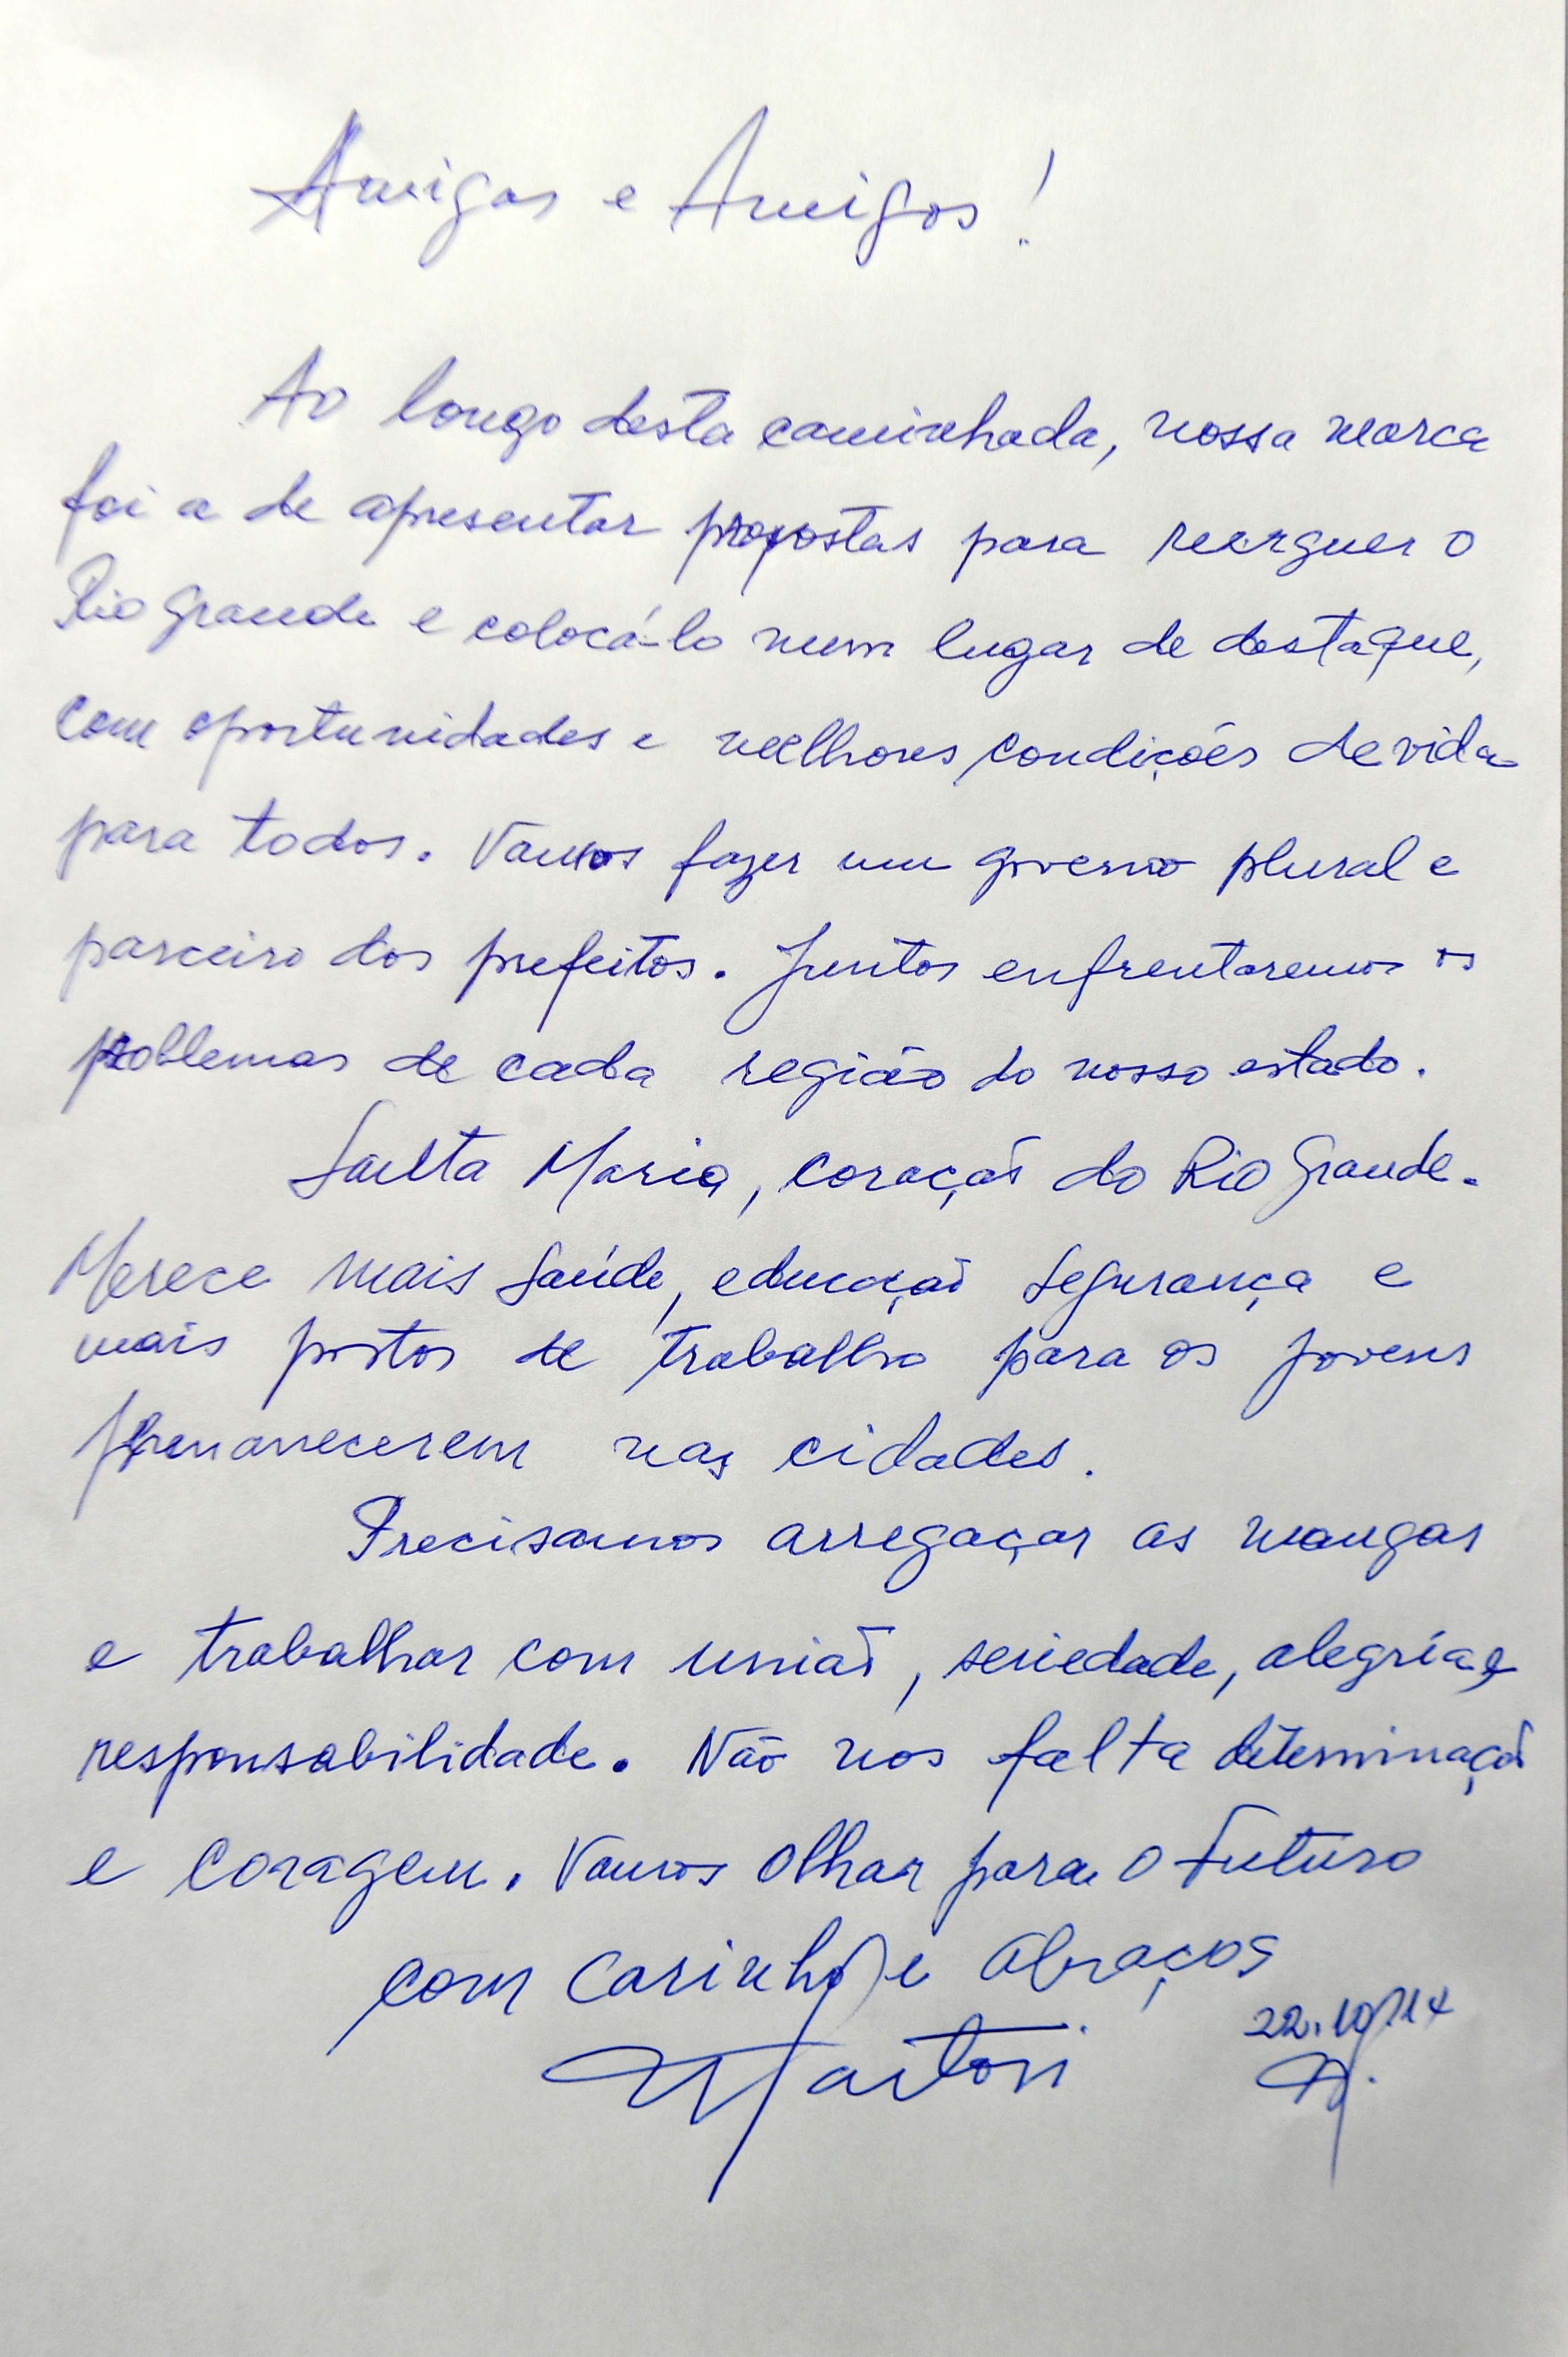 Amigas e Amigos!
Ao longo desta caminhada, nossa marca
foi a de apresentar propostas para reerguer o
Rio Grande e colocá-lo num lugar de destaque,
com oportunidades e melhores condições de vida
para todos. Vamos fazer um governo plural e
parceiro dos prefeitos. Juntos enfrentaremos os
problemas de cada região do nosso estado.
Santa Maria, coração do Rio Grande.
Merece mais saúde, educação segurança e
mais postos de trabalho para os jovens
permanecerem nas cidades.
Precisamos arregaçar as mangas
e trabalhar com união, seriedade, alegria e
responsabilidade. Não nos falta determinação
e coragem. Vamos olhar para o futuro
com carinho e abraços
Sartori
22.10.14